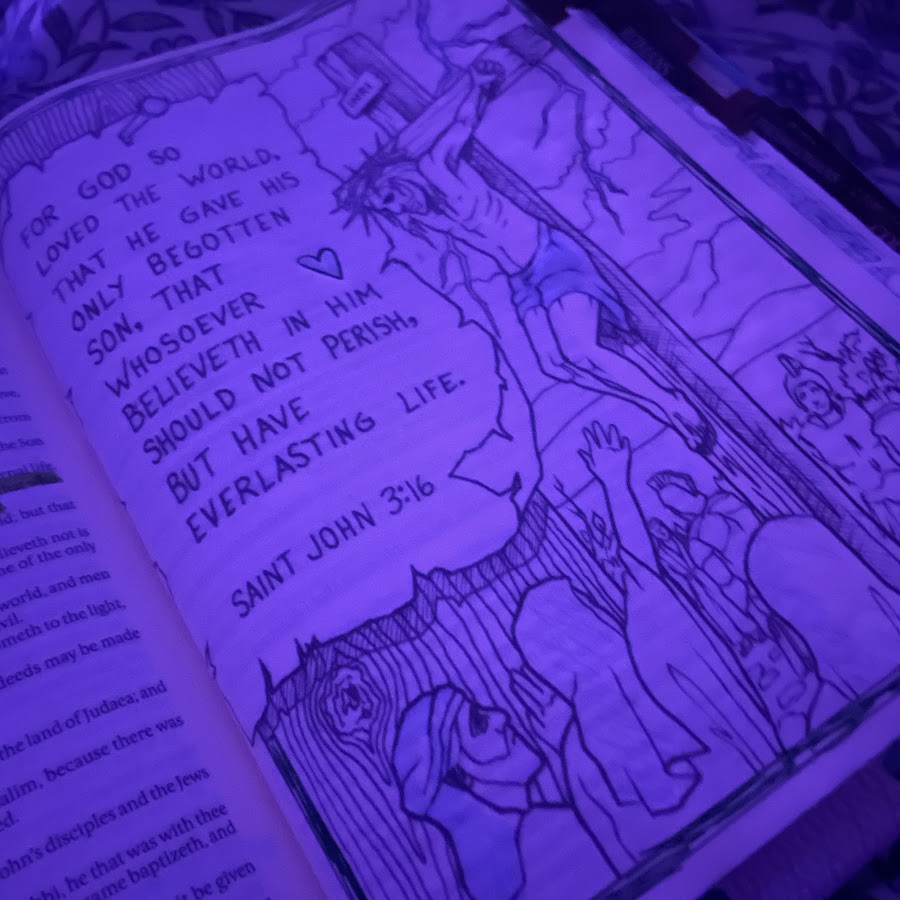 FOR GOD SO
LOVED THE WORLD,
THAT HE GAVE HIS
ONLY BEGOTTEN
SON, THAT
WHOSOEVER
BELIEVETH IN HIM
SHOULD NOT PERISH,
BUT HAVE
EVERLASTING LIFE.
SAINT JOHN 3:16
from
the Son
but that
believeth not is
of the only
world, and men
to the light,
deeds may be made
the land of Judaea; and
because there was
John's disciples and the Jews
he that was with thee
same baptizeth, and
be given